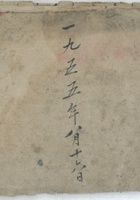 一九五五年八月十六日